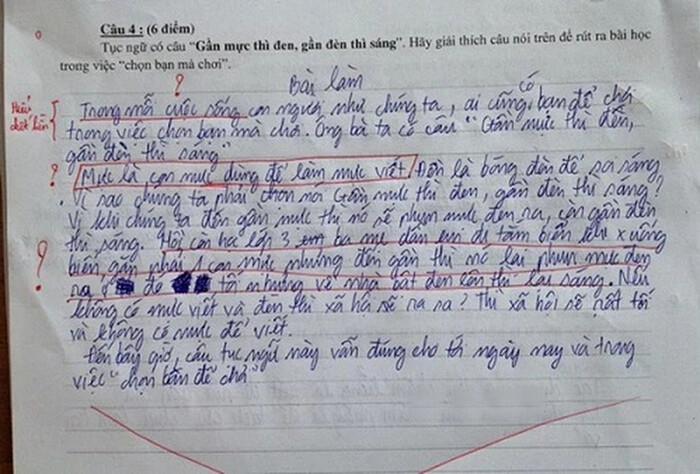 Câu 4 : (6 điểm)
Tục ngữ có câu “Gần mực thì đen, gần đèn thì sáng”. Hãy giải thích câu nói trên để rút ra bài học
trong việc “chọn bạn mà chơi”.
?
Bài làm
Trong mỗi cuộc sống con người như chúng ta, ai cũng có bạn để chơi
trong việc chọn bạn mà chơi. Ông bà ta có câu "Gần mực thì đen,
gần đèn thì sáng"
? Mực là con mực dùng để làm mực viết. Đèn là bóng đèn để sa sáng
. Vì sao chúng ta phải chọn nơi Gần mực thì đen, gần đèn thì sáng?
Vì khi chúng ta đến gần mực thì nó sẽ phun mực đen ra, còn gần đèn
thì sáng. Hồi còn học lớp 3 ba mẹ dẫn em đi tắm biển khi xuống
? biển, gặp phải 1 con mực nhưng đến gần thì nó lại phun mực đen
ra tối nhưng về nhà bật đèn lên thì lại sáng. Nếu
không có mực viết và đèn thì xã hội sẽ ra sa? Thì xã hội sẽ rất tối
và không có mực để viết.
Đến bây giờ, câu tục ngữ này vẫn đúng cho tới ngày nay và trong
việc "chọn bạn để chơi"